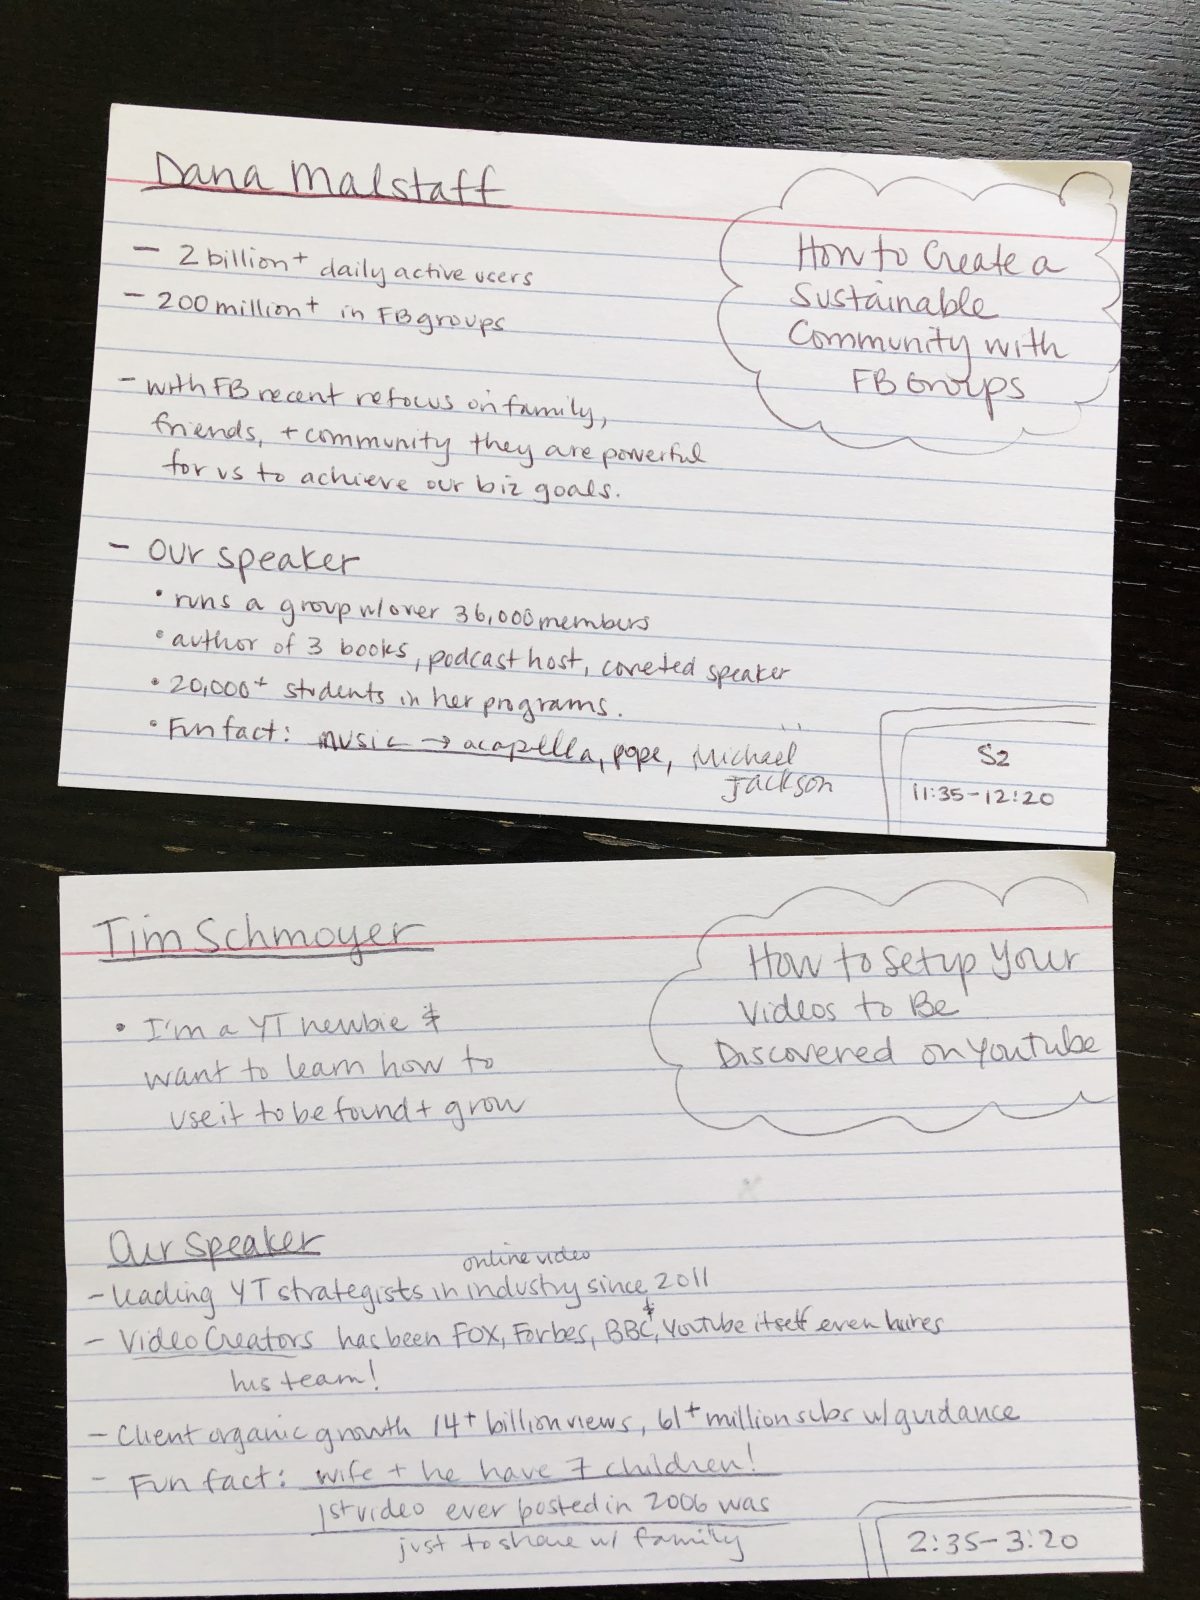 Dana Malstaff
How to Create a
Sustainable
Community with
FB Groups
- 2 billion+ daily active users
- 200 million+ in FB groups
- with FB recent refocus on family,
friends, + community they are powerful
for us to achieve our biz goals.
- Our speaker
• runs a group w/over 36,000 members
• author of 3 books, podcast host, coveted speaker
• 20,000+ students in her programs.
• Fun fact: music → acapella, pope, Michael
Jackson
S2
11:35-12:20
Tim Schmoyer
How to Setup Your
Videos to Be
Discovered on Youtube
• I'm a YT newbie &
want to learn how to
use it to be found + grow
Our Speaker
online video
- leading YT strategists in industry since 2011
- Video Creators has been FOX, Forbes, BBC, & Youtube itself even hires
his team!
- Client organic growth 14+ billion views, 61+ million subs w/guidance
- Fun fact: wife + he have 7 children!
1st video ever posted in 2006 was
just to share w/ family
2:35-3:20